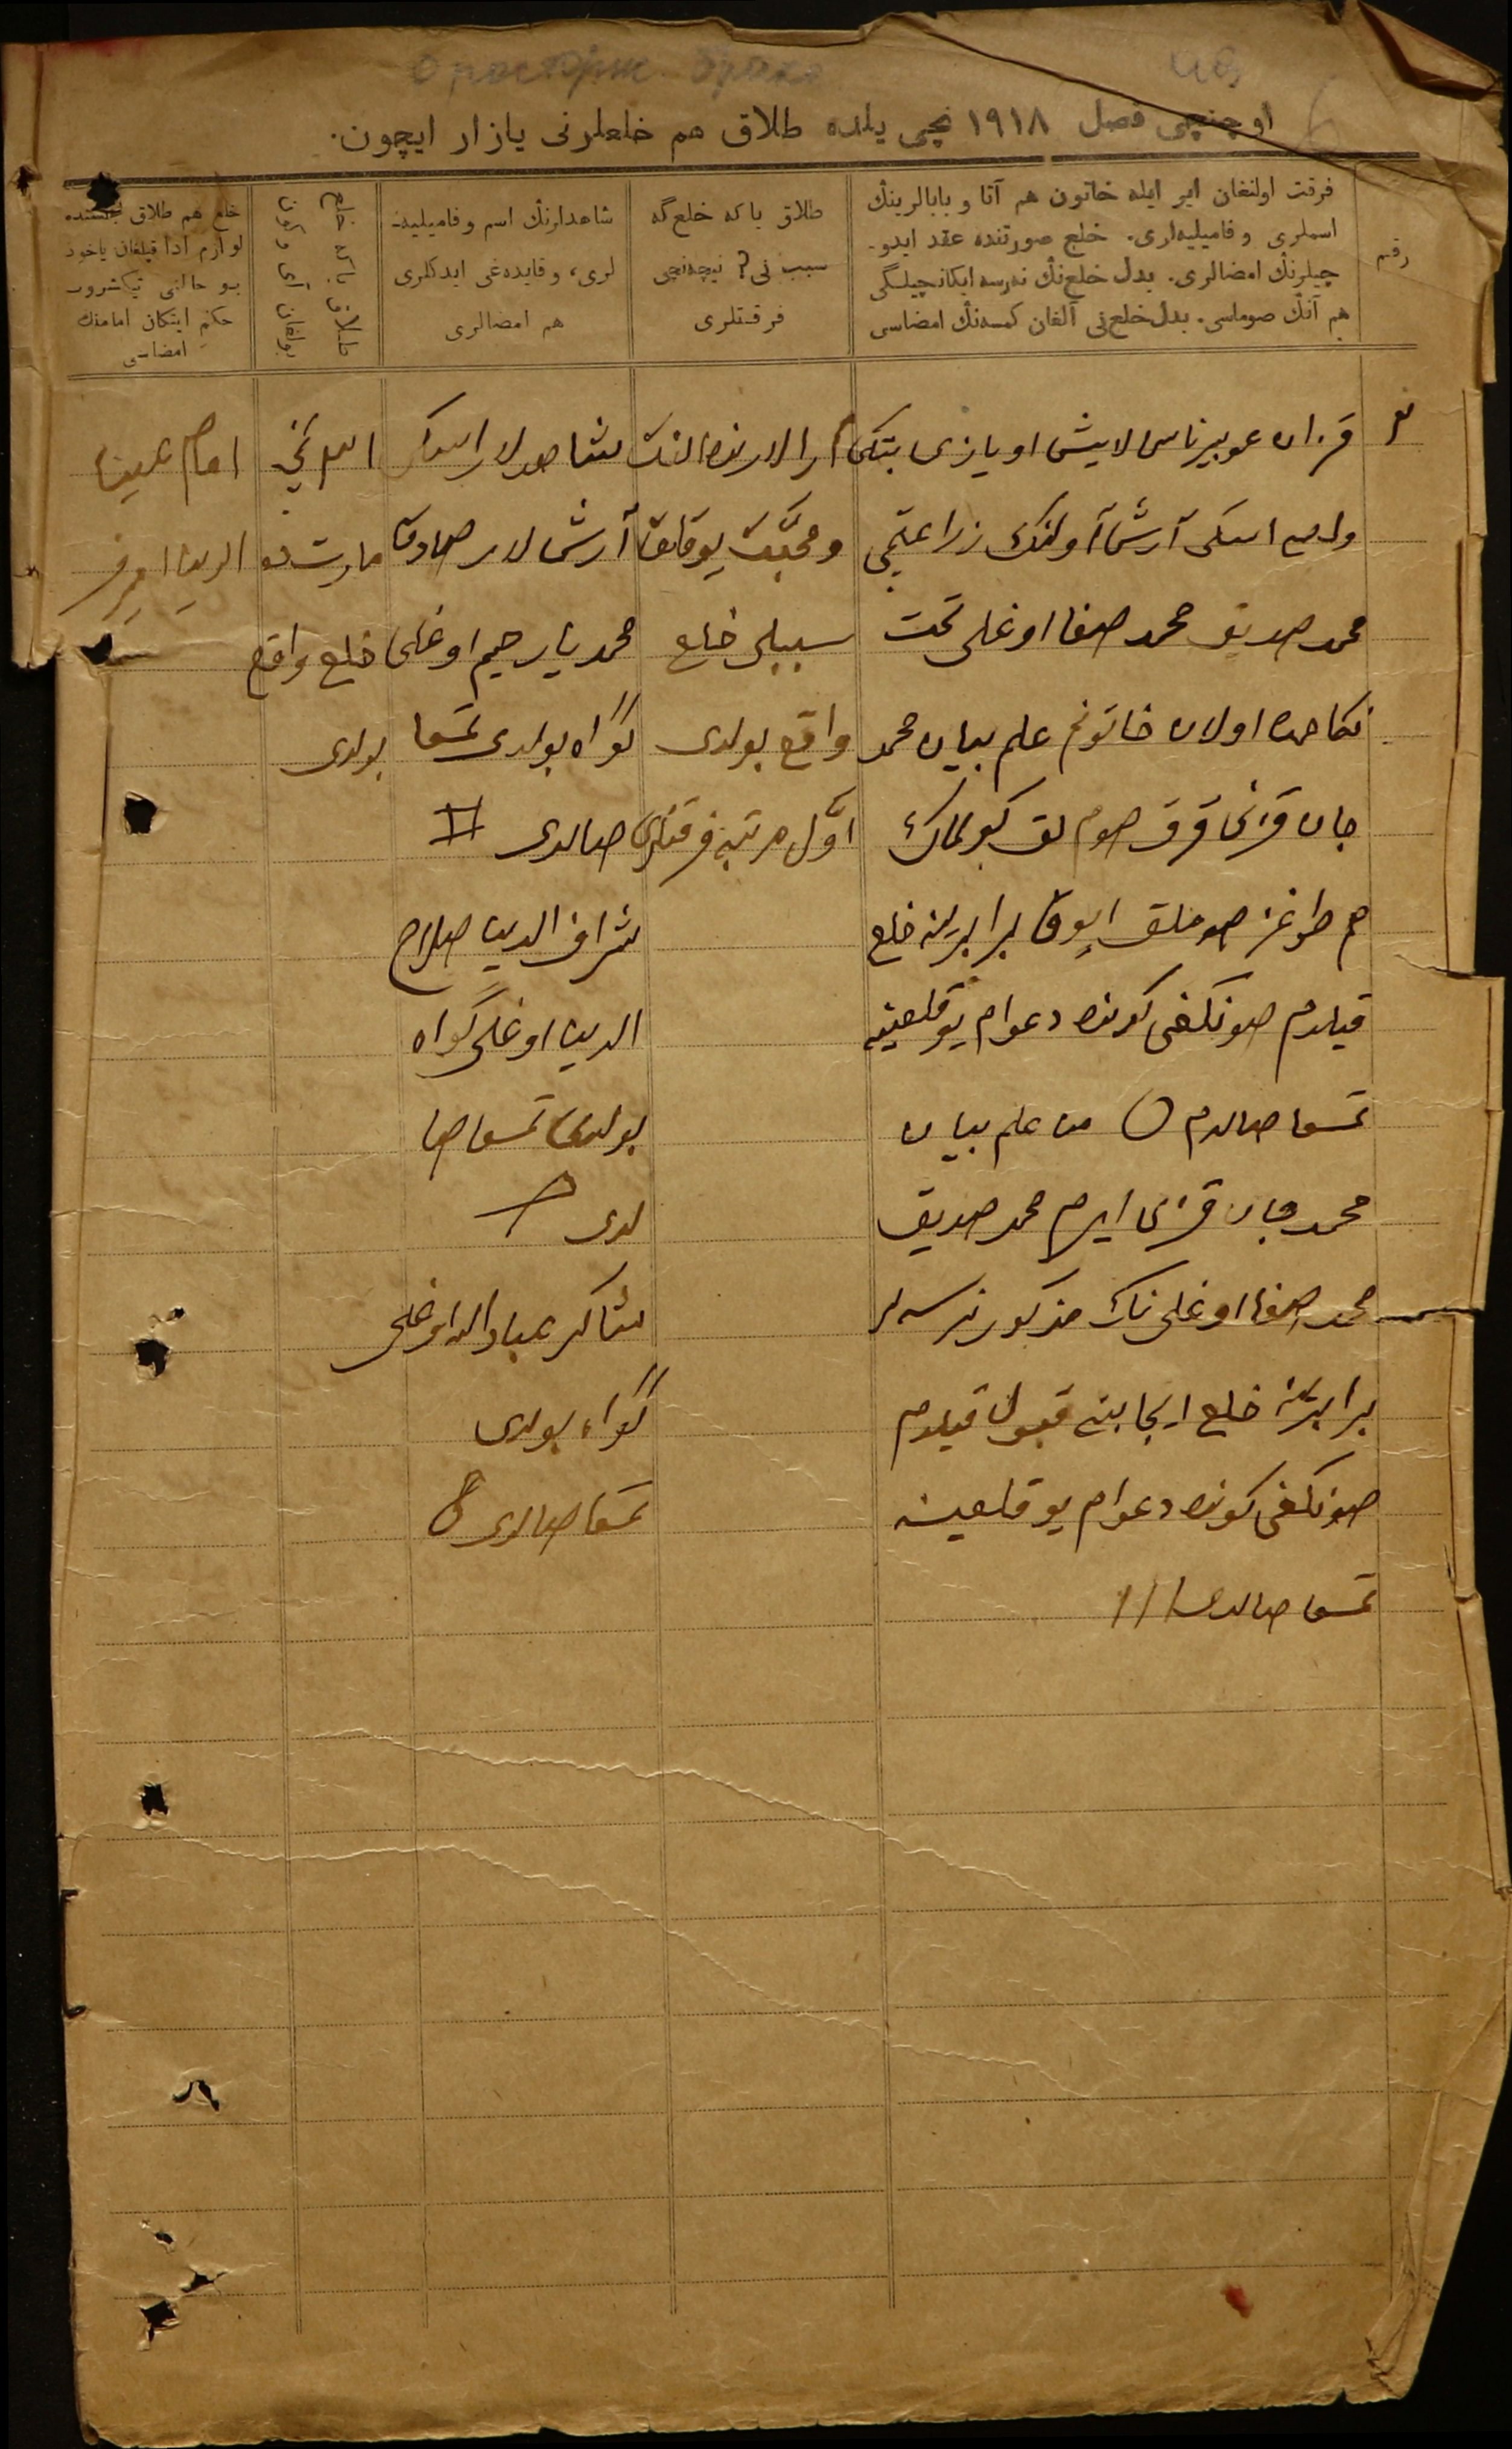 о расторж. брака
اوچنچی فصل ١٩١٨ نچی یلده طلاق هم خلعلرنی یازار ایچون.
رقم
فرقت اولنغان ایر ایله خاتون هم آتا و بابالرینڭ
اسملری و فامیلیه‌لری. خلع صورتنده عقد ایدو-
چیلرنڭ امضالری. بدل خلع‌نڭ نه‌رسه ایکانچیلگی
هم آنڭ صوماسی. بدل خلع‌نی آلغان کمسه‌نڭ امضاسی
طلاق یا که خلع‌گه
سبب نی؟ نیچه‌نچی
فرقتلری
شاهدلرنڭ اسم و فامیلیه-
لری، و قایده‌غی ایدکلری
هم امضالری
خلع یا که طلاق
بولغان آی و کون
خلع هم طلاق بحثنده
لوازم ادا قیلغان یاخود
بو حالنی تیکشروب
حکم ایتکان امامنڭ
امضاسی
قزان غوبیرناسی لایش اویازی
ولوسی اسکی آرش آولنڭ زراعتچی
محمد صدیق محمد صفا اوغلی تحت
نکاحده اولان خاتونم علم بیان محمد
جان قزی قرق صوم لق کولماک
هم طوغز صوملق ایوق برابرینه خلع
قیلدم صونکغی کونده دعوام یوقلغینه
تمغا صالدم من علم بیان
محمد جان قزی ایرم محمد صدیق
محمد صفا اوغلی ناڭ مذکور نرسه لر
برابرینه خلع ایجابنه قبول قیلدم
صونکغی کونده دعوام یوقلغینه
تمغا صالدم ///
آرالارنده الفت
و محبّت یوقلق
سببلی خلع
واقع بولدی
اوّل مرتبه فرقتلری
شاهدلار اسکی
آرش لار صادق
محمد یارحیم اوغلی
گواه بولدی تمغا
صالدی #
شراف الدین صلاح
الدین اوغلی گواه
بولدی تمغا صا
لدی
شاکر عبادالله اوغلی
گواه بولدی
تمغا صالدی
مارت ده
خلع واقع
بولدی
امام